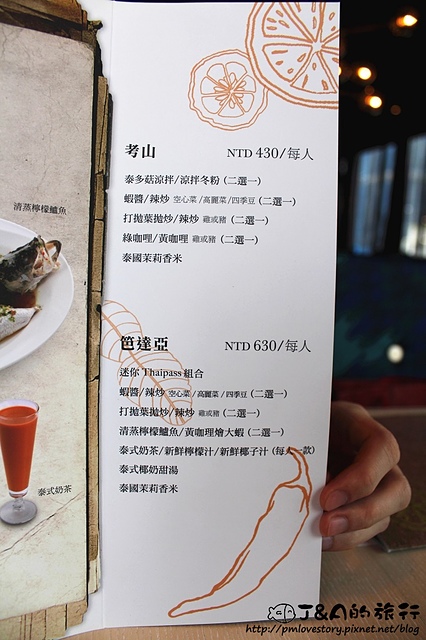 清蒸檸檬鱸魚
泰式奶茶
考山 NTD 430/每人
泰多菇涼拌/涼拌冬粉 (二選一)
蝦醬/辣炒 空心菜/高麗菜/四季豆 (二選一)
打拋葉拋炒/辣炒 雞或豬 (二選一)
綠咖哩/黃咖哩 雞或豬 (二選一)
泰國茉莉香米
芭達亞 NTD 630/每人
迷你 Thaipass 組合
蝦醬/辣炒 空心菜/高麗菜/四季豆 (二選一)
打拋葉拋炒/辣炒 雞或豬 (二選一)
清蒸檸檬鱸魚/黃咖哩燴大蝦 (二選一)
泰式奶茶/新鮮檸檬汁/新鮮椰子汁 (每人一款)
泰式椰奶甜湯
泰國茉莉香米
J&A的旅行
http://pmlovestory.pixnet.net/blog